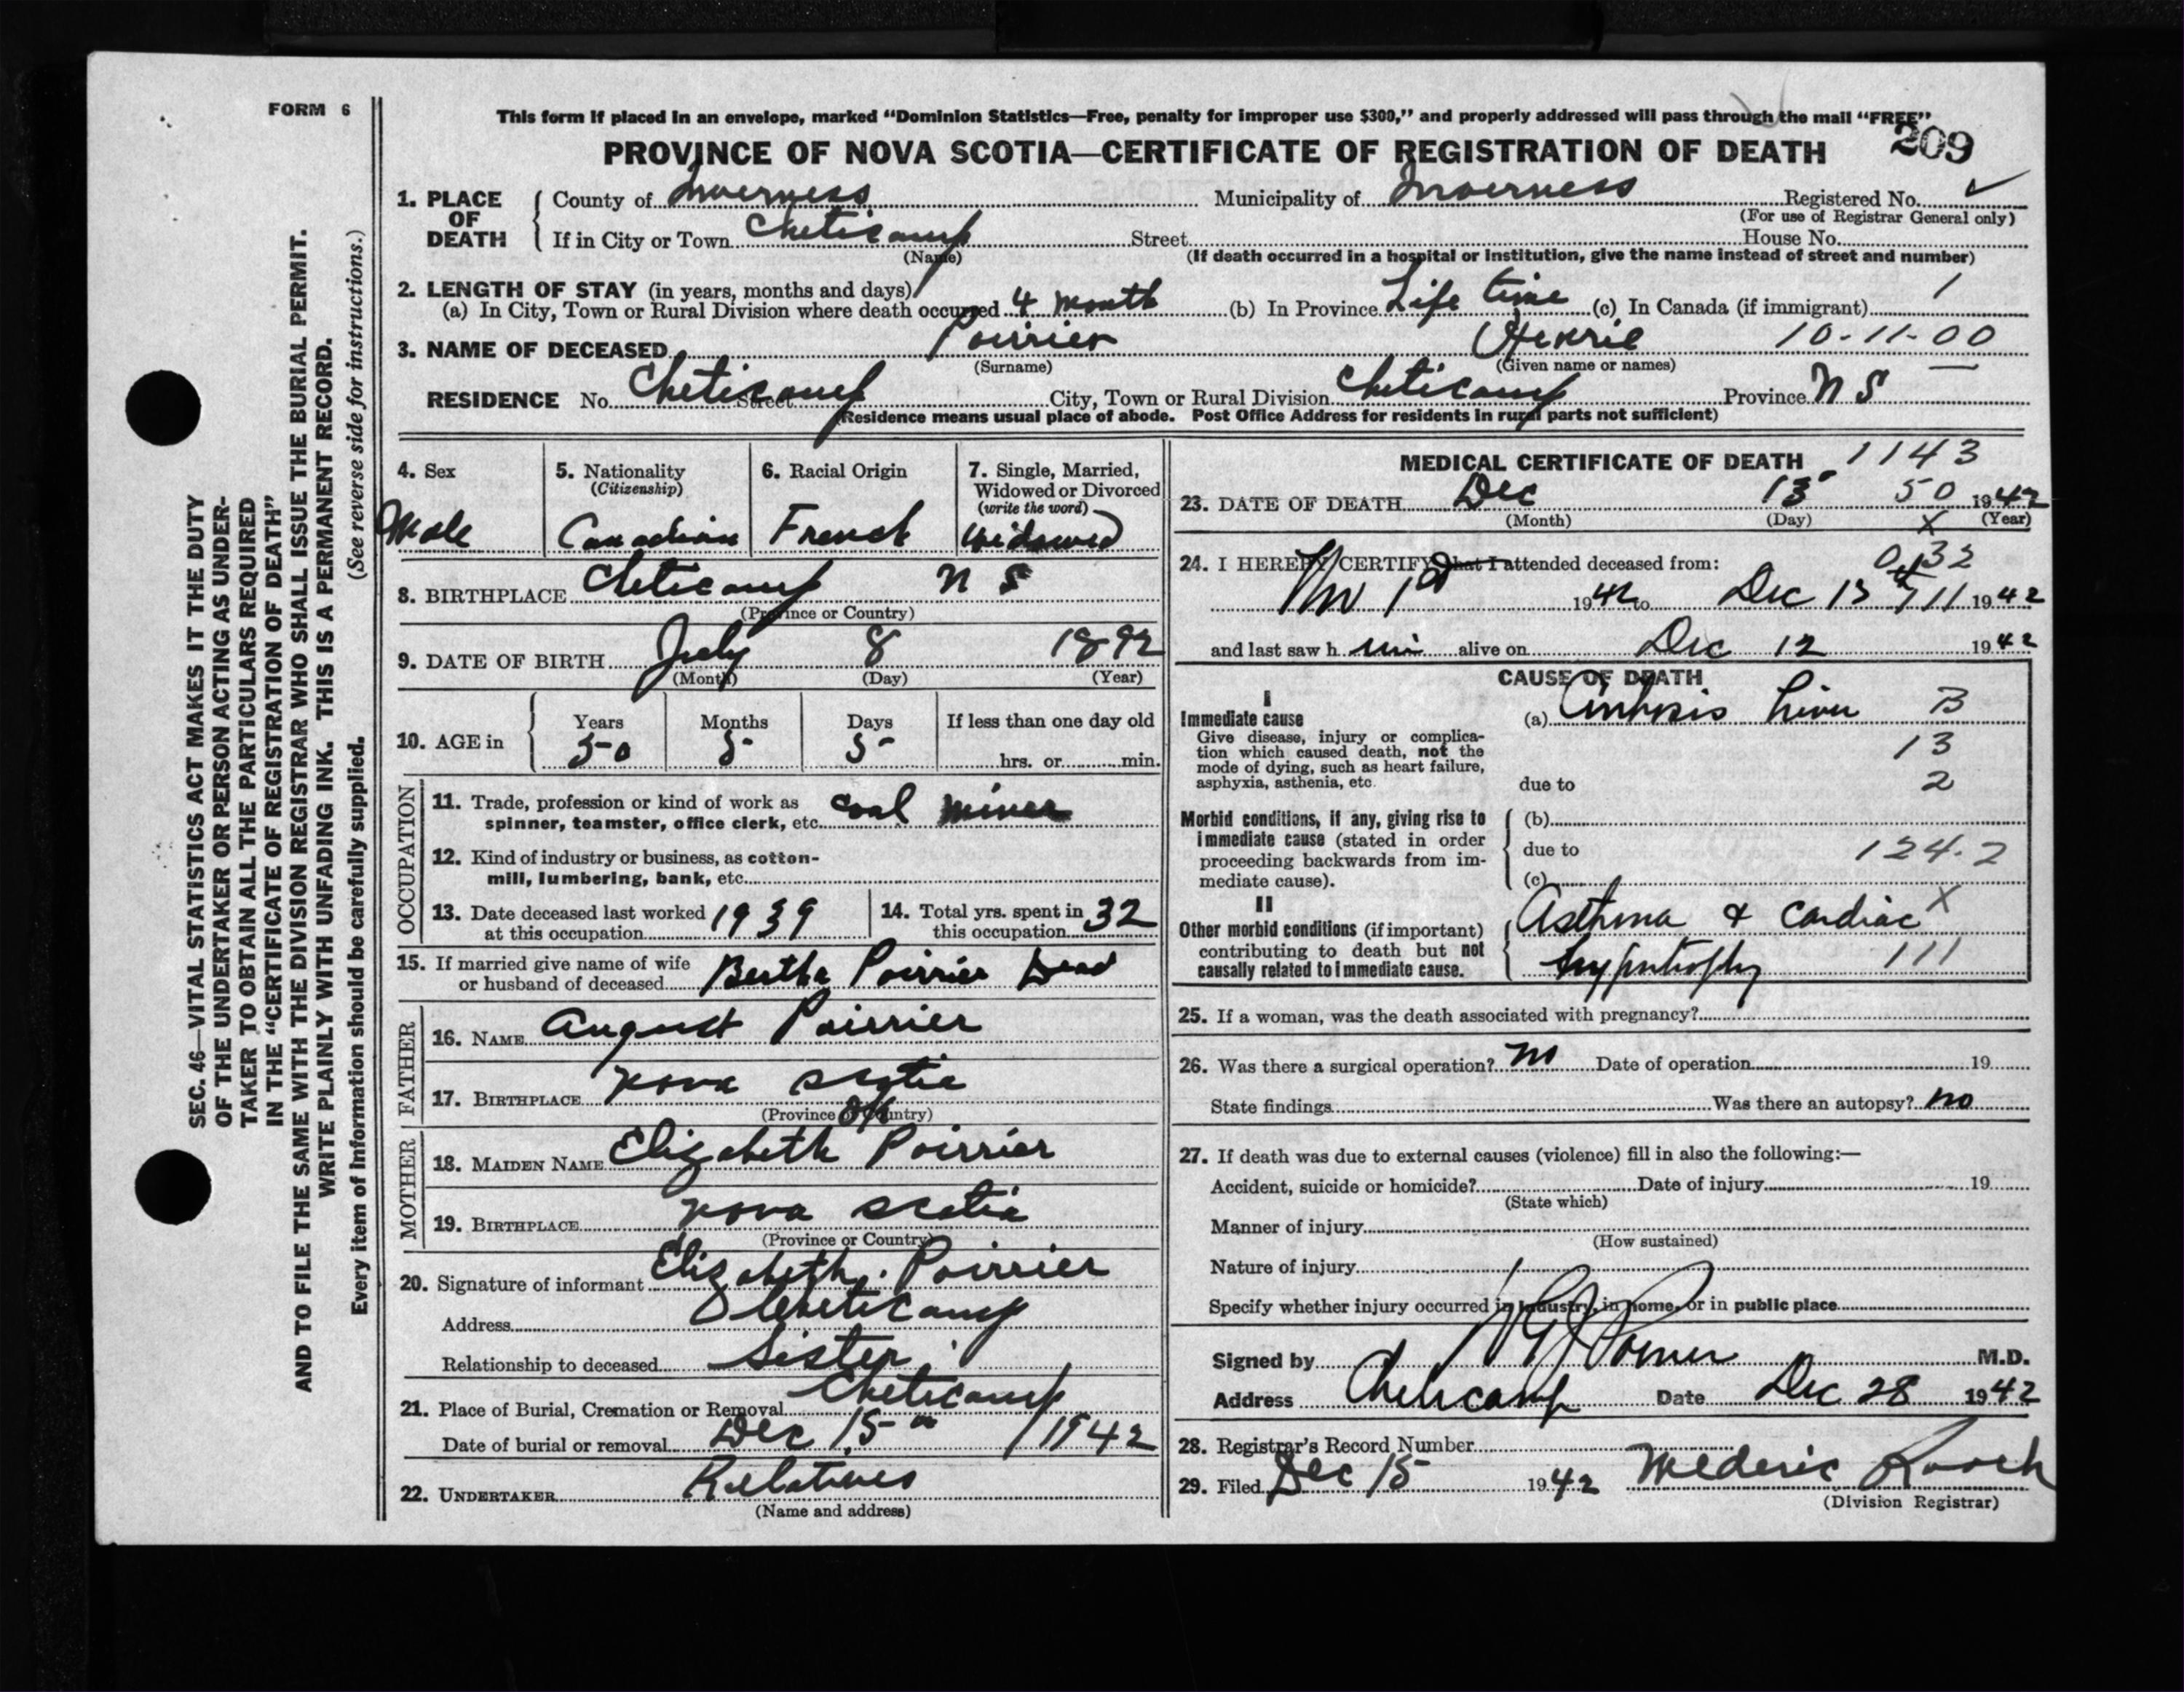 FORM 6
This form if placed in an envelope, marked "Dominion Statistics—Free, penalty for improper use $300," and properly addressed will pass through the mail "FREE"
PROVINCE OF NOVA SCOTIA—CERTIFICATE OF REGISTRATION OF DEATH 209
1. PLACE OF DEATH County of Inverness Municipality of Inverness Registered No.
(For use of Registrar General only)
If in City or Town Cheticamp Street House No.
(Name) (If death occurred in a hospital or institution, give the name instead of street and number)
2. LENGTH OF STAY (in years, months and days)
(a) In City, Town or Rural Division where death occurred 4 month (b) In Province Life time (c) In Canada (if immigrant) 1
3. NAME OF DECEASED Poirrier Henrie 10-11-00
(Surname) (Given name or names)
RESIDENCE No. Cheticamp Street City, Town or Rural Division Cheticamp Province N S
(Residence means usual place of abode. Post Office Address for residents in rural parts not sufficient)
4. Sex 5. Nationality 6. Racial Origin 7. Single, Married,
(Citizenship) Widowed or Divorced
(write the word)
Male Canadian French Widowed
8. BIRTHPLACE Cheticamp N S
(Province or Country)
9. DATE OF BIRTH July 8 1892
(Month) (Day) (Year)
10. AGE in Years Months Days If less than one day old
50 5 5 hrs. or min.
OCCUPATION
11. Trade, profession or kind of work as coal miner
spinner, teamster, office clerk, etc.
12. Kind of industry or business, as cotton-
mill, lumbering, bank, etc.
13. Date deceased last worked 1939 14. Total yrs. spent in 32
at this occupation this occupation
15. If married give name of wife Bertha Poirrier Dead
or husband of deceased
FATHER
16. NAME August Poirrier
17. BIRTHPLACE Nova Scotia
(Province or Country)
MOTHER
18. MAIDEN NAME Elizabeth Poirrier
19. BIRTHPLACE Nova Scotia
(Province or Country)
20. Signature of informant Elizabeth Poirrier
Address Cheticamp
Relationship to deceased Sister
21. Place of Burial, Cremation or Removal Cheticamp
Date of burial or removal Dec 15 1942
22. UNDERTAKER Relatives
(Name and address)
MEDICAL CERTIFICATE OF DEATH 1143
23. DATE OF DEATH Dec 13 50 1942
(Month) (Day) X (Year)
24. I HEREBY CERTIFY that I attended deceased from: 0132
Nov 1st 1942 to Dec 13 1942
and last saw h im alive on Dec 12 1942
CAUSE OF DEATH
I
Immediate cause (a) Cirrhosis Liver B
Give disease, injury or complica-
tion which caused death, not the 13
mode of dying, such as heart failure,
asphyxia, asthenia, etc. due to 2
Morbid conditions, if any, giving rise to (b)
immediate cause (stated in order due to 124.2
proceeding backwards from im-
mediate cause). (c)
II
Other morbid conditions (if important) Asthma & Cardiac X
contributing to death but not
causally related to immediate cause. hypertrophy 111
25. If a woman, was the death associated with pregnancy?
26. Was there a surgical operation? no Date of operation 19
State findings Was there an autopsy? no
27. If death was due to external causes (violence) fill in also the following:—
Accident, suicide or homicide? Date of injury 19
(State which)
Manner of injury
(How sustained)
Nature of injury
Specify whether injury occurred in industry, in home, or in public place
Signed by M.D.
Address Cheticamp Date Dec 28 1942
28. Registrar's Record Number
29. Filed Dec 15 1942 Mederic Roach
(Division Registrar)
SEC. 46—VITAL STATISTICS ACT MAKES IT THE DUTY
OF THE UNDERTAKER OR PERSON ACTING AS UNDER-
TAKER TO OBTAIN ALL THE PARTICULARS REQUIRED
IN THE "CERTIFICATE OF REGISTRATION OF DEATH"
AND TO FILE THE SAME WITH THE DIVISION REGISTRAR WHO SHALL ISSUE THE BURIAL PERMIT.
WRITE PLAINLY WITH UNFADING INK. THIS IS A PERMANENT RECORD.
Every item of information should be carefully supplied. (See reverse side for instructions.)